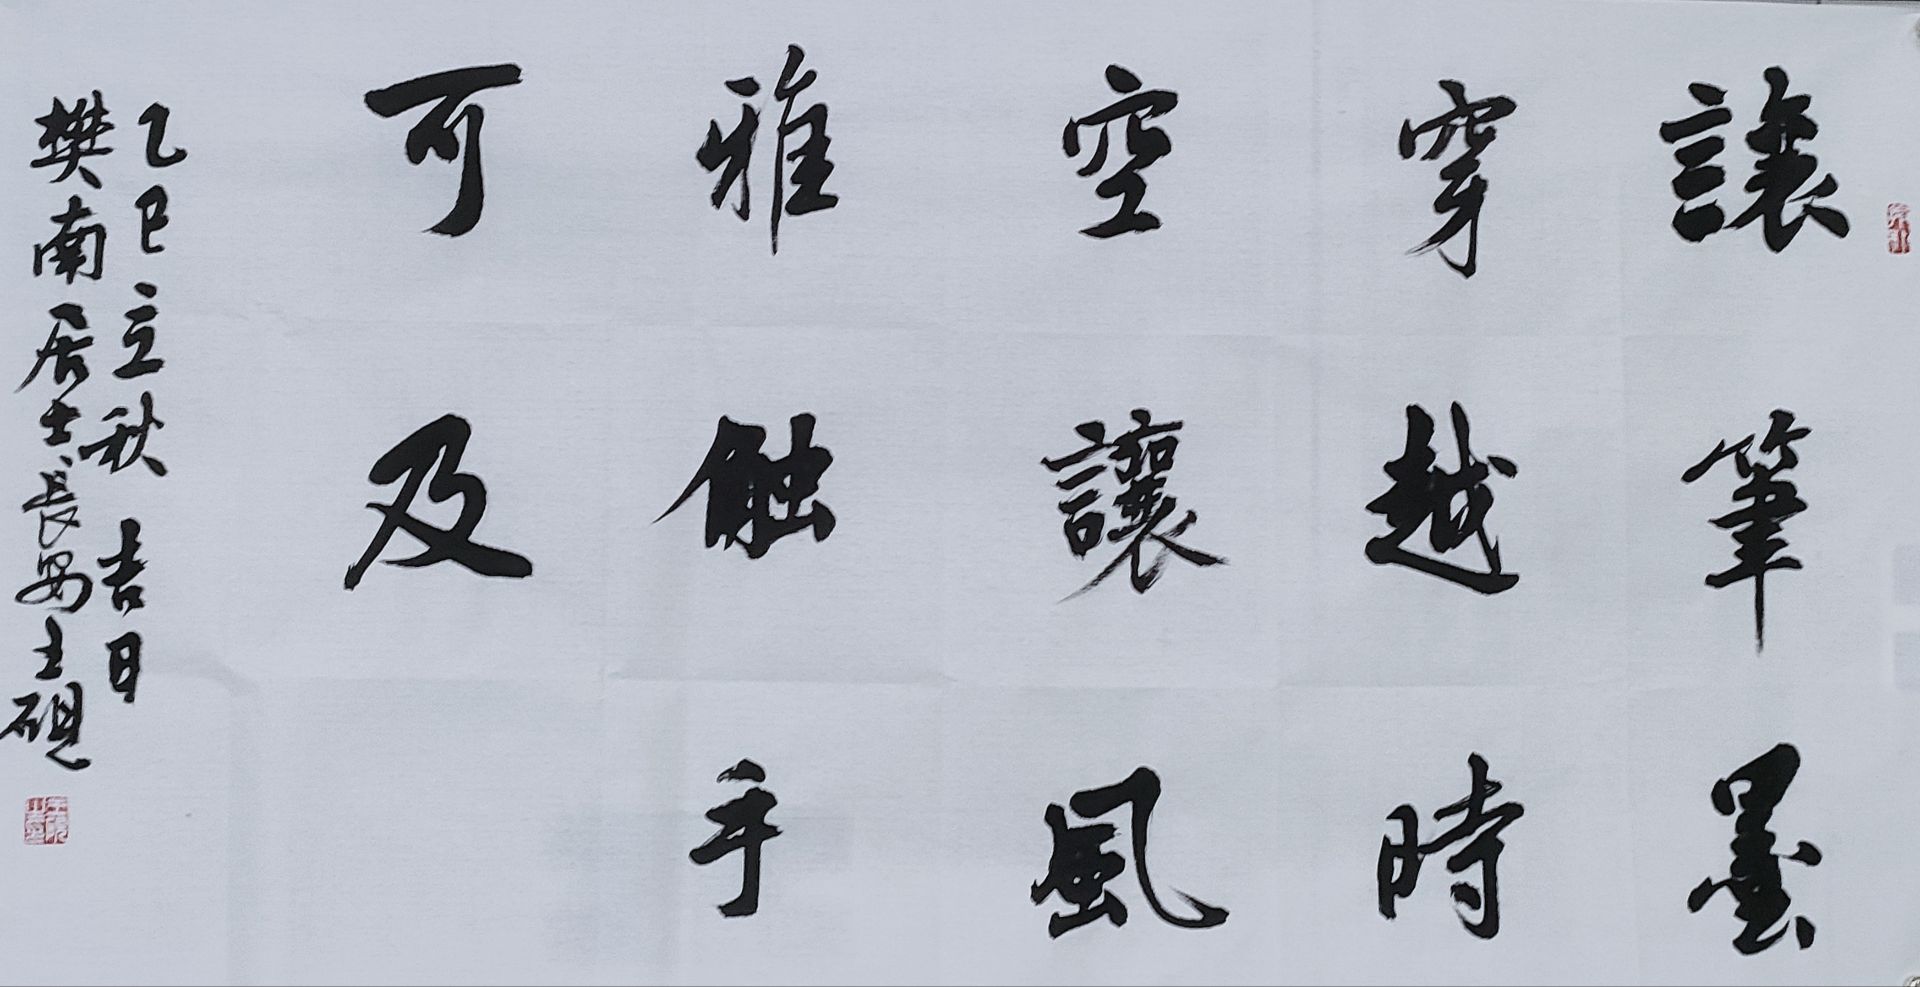 讓筆墨
穿越時
空讓風
雅觸手
可及
乙巳立秋吉日
樊南居士長安王硯